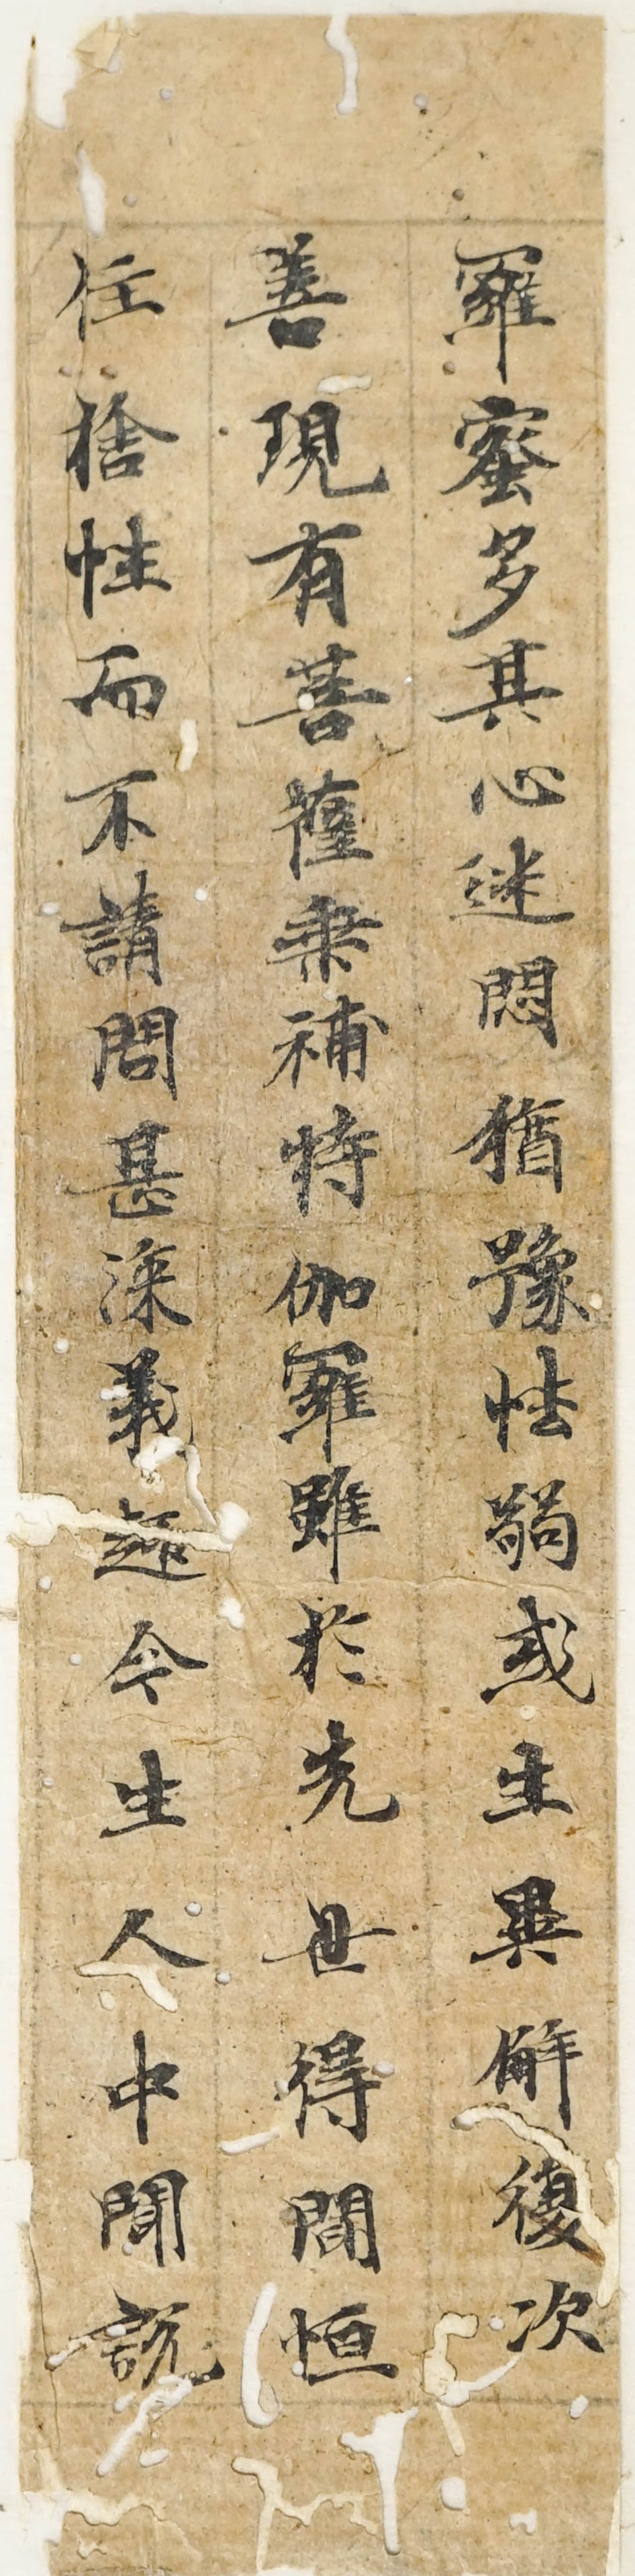 羅蜜多其心迷悶猶豫怯弱或生異解復次
善現有菩薩乘補特伽羅雖於先世得聞恒
住捨性而不請問甚深義趣今生人中聞說